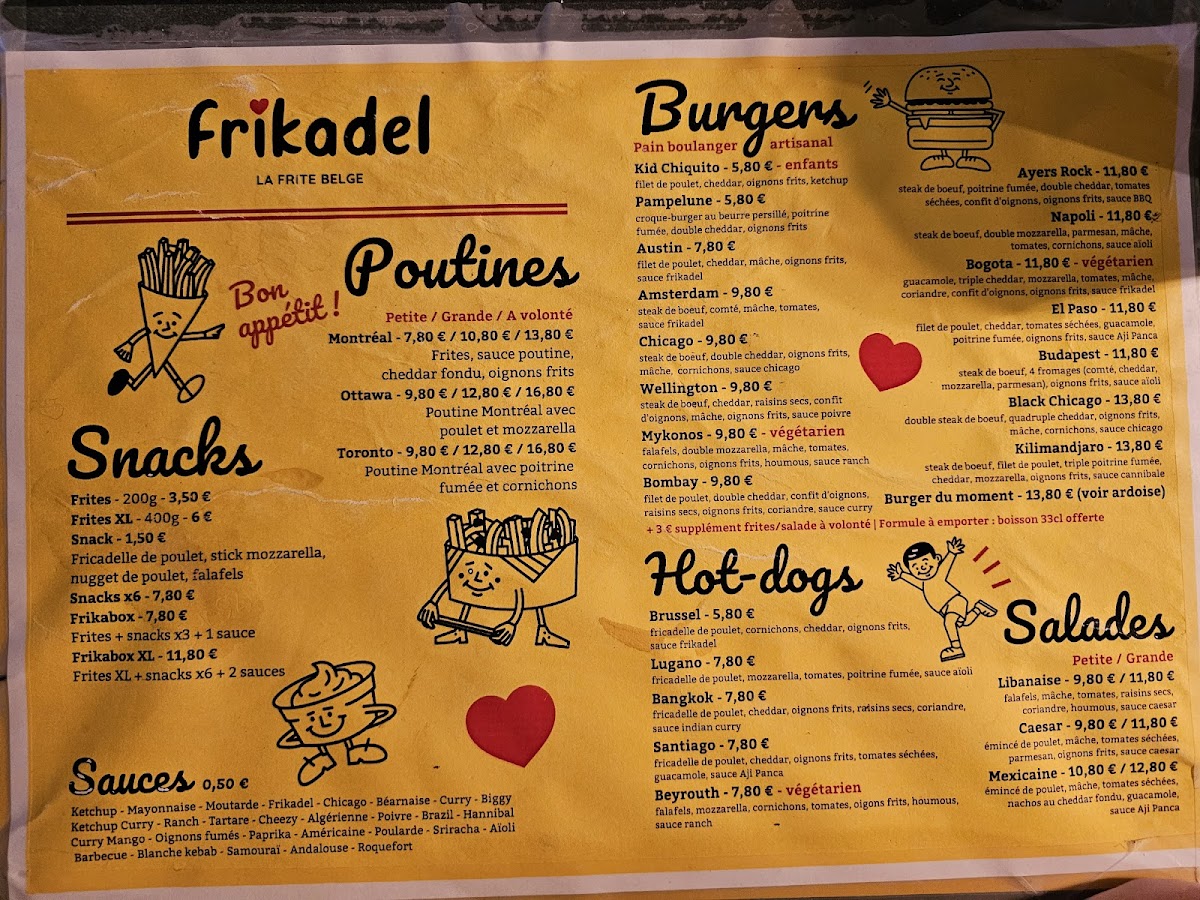 Frikadel
LA FRITE BELGE
Bon
appétit !
Poutines
Petite / Grande / A volonté
Montréal - 7,80 € / 10,80 € / 13,80 €
Frites, sauce poutine,
cheddar fondu, oignons frits
Ottawa - 9,80 € / 12,80 € / 16,80 €
Poutine Montréal avec
poulet et mozzarella
Toronto - 9,80 € / 12,80 € / 16,80 €
Poutine Montréal avec poitrine
fumée et cornichons
Snacks
Frites - 200g - 3,50 €
Frites XL - 400g - 6 €
Snack - 1,50 €
Fricadelle de poulet, stick mozzarella,
nugget de poulet, falafels
Snacks x6 - 7,80 €
Frikabox - 7,80 €
Frites + snacks x3 + 1 sauce
Frikabox XL - 11,80 €
Frites XL + snacks x6 + 2 sauces
Sauces 0,50 €
Ketchup - Mayonnaise - Moutarde - Frikadel - Chicago - Béarnaise - Curry - Biggy
Ketchup Curry - Ranch - Tartare - Cheezy - Algérienne - Poivre - Brazil - Hannibal
Curry Mango - Oignons fumés - Paprika - Américaine - Poularde - Sriracha - Aïoli
Barbecue - Blanche kebab - Samouraï - Andalouse - Roquefort
Burgers
Pain boulanger artisanal
Kid Chiquito - 5,80 € - enfants
filet de poulet, cheddar, oignons frits, ketchup
Pampelune - 5,80 €
croque-burger au beurre persillé, poitrine
fumée, double cheddar, oignons frits
Austin - 7,80 €
filet de poulet, cheddar, mâche, oignons frits,
sauce frikadel
Amsterdam - 9,80 €
steak de boeuf, comté, mâche, tomates,
sauce frikadel
Chicago - 9,80 €
steak de boeuf, double cheddar, oignons frits,
mâche, cornichons, sauce chicago
Wellington - 9,80 €
steak de boeuf, cheddar, raisins secs, confit
d'oignons, mâche, oignons frits, sauce poivre
Mykonos - 9,80 € - végétarien
falafels, double mozzarella, mâche, tomates,
cornichons, oignons frits, houmous, sauce ranch
Bombay - 9,80 €
filet de poulet, double cheddar, confit d'oignons,
raisins secs, oignons frits, coriandre, sauce curry
Ayers Rock - 11,80 €
steak de boeuf, poitrine fumée, double cheddar, tomates
séchées, confit d'oignons, oignons frits, sauce BBQ
Napoli - 11,80 €
steak de boeuf, double mozzarella, parmesan, mâche,
tomates, cornichons, sauce aïoli
Bogota - 11,80 € - végétarien
guacamole, triple cheddar, mozzarella, tomates, mâche,
coriandre, confit d'oignons, oignons frits, sauce frikadel
El Paso - 11,80 €
filet de poulet, cheddar, tomates séchées, guacamole,
poitrine fumée, oignons frits, sauce Aji Panca
Budapest - 11,80 €
steak de boeuf, 4 fromages (comté, cheddar,
mozzarella, parmesan), oignons frits, sauce aïoli
Black Chicago - 13,80 €
double steak de boeuf, quadruple cheddar, oignons frits,
mâche, cornichons, sauce chicago
Kilimandjaro - 13,80 €
steak de boeuf, filet de poulet, triple poitrine fumée,
cheddar, mozzarella, oignons frits, sauce cannibale
Burger du moment - 13,80 € (voir ardoise)
+ 3 € supplément frites/salade à volonté | Formule à emporter : boisson 33cl offerte
Hot-dogs
Brussel - 5,80 €
fricadelle de poulet, cornichons, cheddar, oignons frits,
sauce frikadel
Lugano - 7,80 €
fricadelle de poulet, mozzarella, tomates, poitrine fumée, sauce aïoli
Bangkok - 7,80 €
fricadelle de poulet, cheddar, oignons frits, raisins secs, coriandre,
sauce indian curry
Santiago - 7,80 €
fricadelle de poulet, cheddar, oignons frits, tomates séchées,
guacamole, sauce Aji Panca
Beyrouth - 7,80 € - végétarien
falafels, mozzarella, cornichons, tomates, oigons frits, houmous,
sauce ranch
Salades
Petite / Grande
Libanaise - 9,80 € / 11,80 €
falafels, mâche, tomates, raisins secs,
coriandre, houmous, sauce caesar
Caesar - 9,80 € / 11,80 €
émincé de poulet, mâche, tomates séchées,
parmesan, oignons frits, sauce caesar
Mexicaine - 10,80 € / 12,80 €
émincé de poulet, mâche, tomates séchées,
nachos au cheddar fondu, guacamole,
sauce Aji Panca